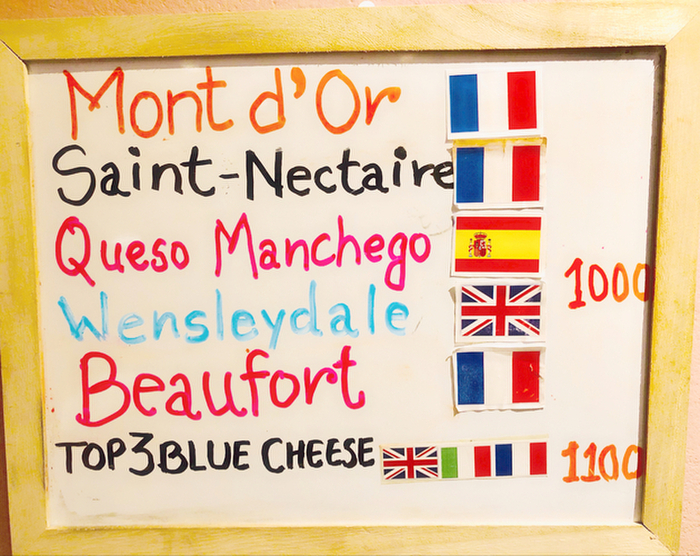 Mont d'Or
Saint-Nectaire
Queso Manchego
1000
Wensleydale
Beaufort
TOP3BLUE CHEESE 1100